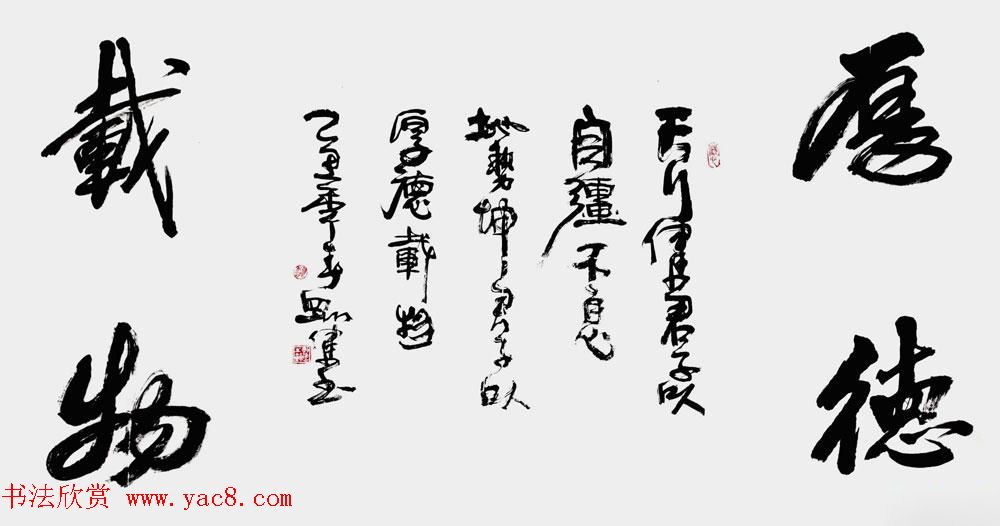 厚德
天行健君子以
自彊不息
地勢坤君子以
厚德載物
載物
书法欣赏 www.yac8.com